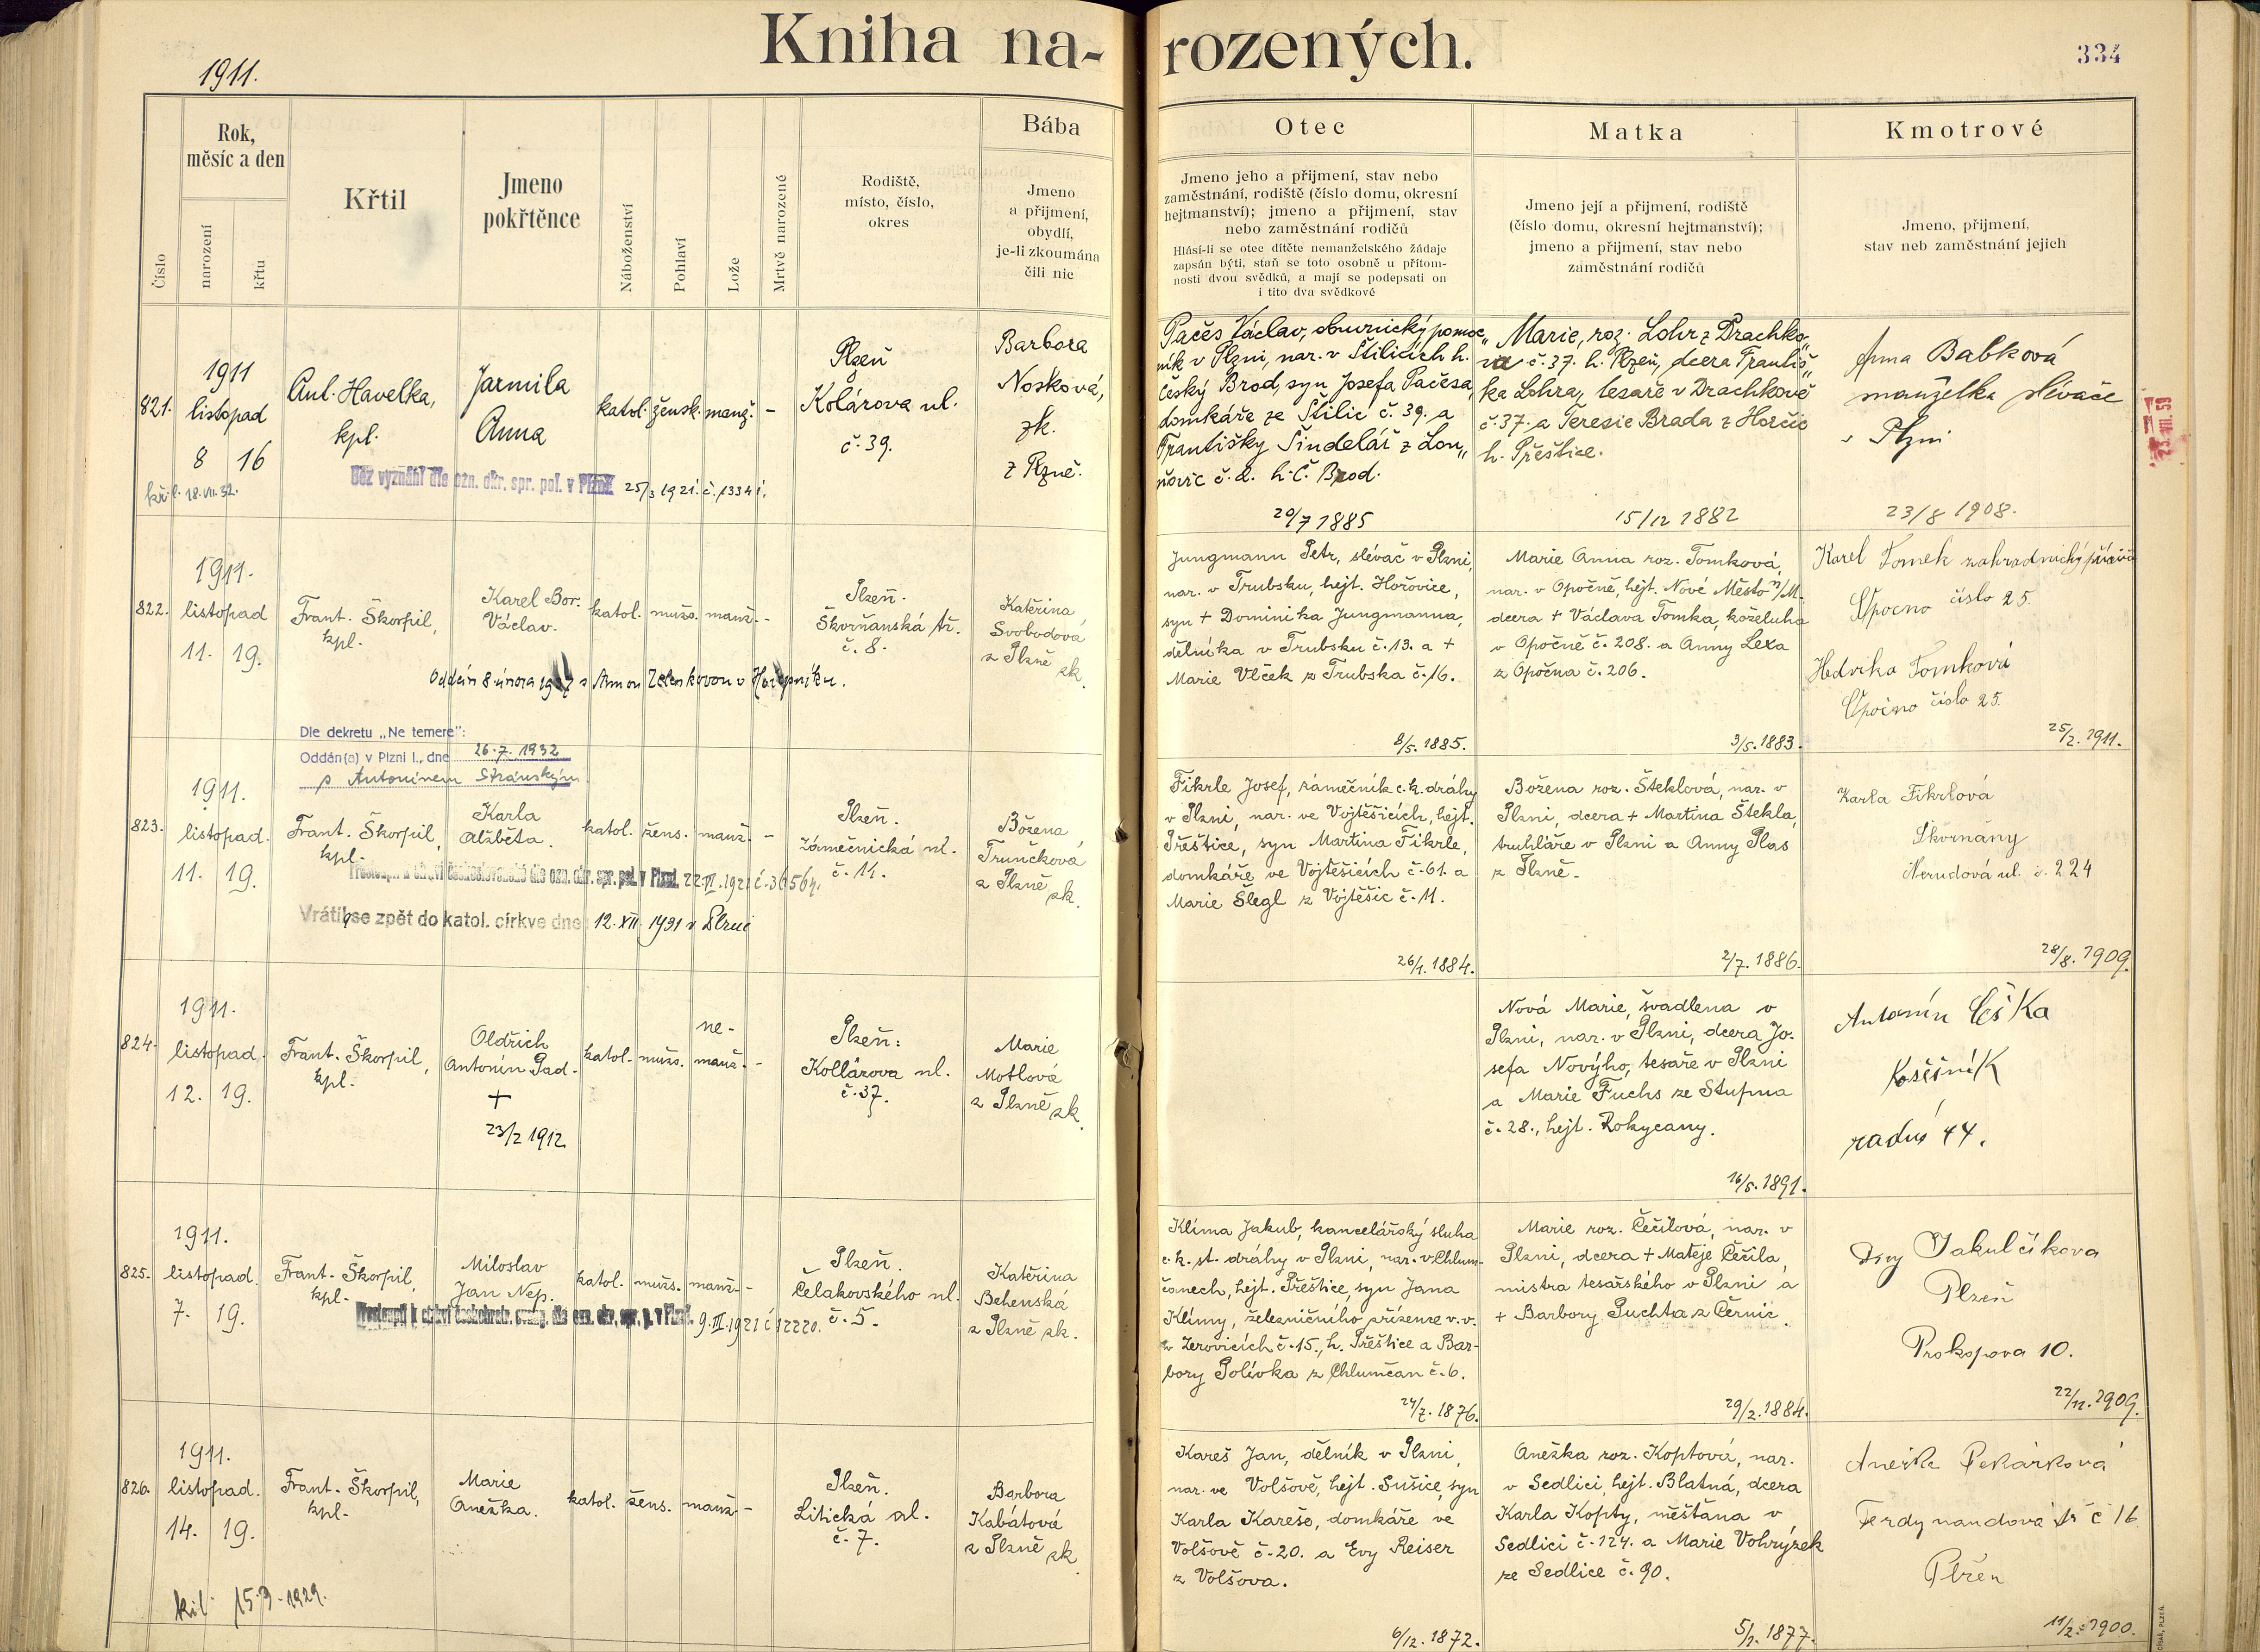 Kniha na-
rozených.
1911.
334
Číslo
Rok,
měsíc a den
narození
křtu
Křtil
Jmeno
pokřtěnce
Náboženství
Pohlaví
Lože
Mrtvě narozené
Rodiště,
místo, číslo,
okres
Bába
Jmeno
a přijmení,
obydlí,
je-li zkoumána
čili nic
Otec
Jmeno jeho a přijmení, stav nebo
zaměstnání, rodiště (číslo domu, okresní
hejtmanství); jmeno a přijmení, stav
nebo zaměstnání rodičů
Hlásí-li se otec dítěte nemanželského žádaje
zapsán býti, staň se toto osobně u přítom-
nosti dvou svědků, a mají se podepsati on
i tito dva svědkové
Matka
Jmeno její a přijmení, rodiště
(číslo domu, okresní hejtmanství);
jmeno a přijmení, stav nebo
zaměstnání rodičů
Kmotrové
Jmeno, přijmení,
stav neb zaměstnání jejich
821.
1911
listopad
8 16
18.VII.32.
Ant. Havelka,
kpl.
Jarmila
Anna
katol. žensk. manž. -
Bez vyznání dle ozn. okr. spr. pol. v Plzni 25/3 1921. č. 13341.
Plzeň
Kolárova ul.
č. 39.
Barbora
Nosková,
zk.
z Plzně.
Pačes Václav, obuvnický pomoc„
ník v Plzni, nar. v Štilicích h.
Český Brod, syn Josefa Pačesa,
domkáře ze Štilic č. 39. a
Františky Šindelář z Lon„
ňovic č. 2. h. Č. Brod.
20/7 1885
Marie, roz. Lohr z Drachko„
va č. 37. h. Plzeň, dcera Františ„
ka Lohra, tesaře v Drachkově
č. 37. a Teresie Brada z Horčic
h. Přeštice.
15/12 1882
Anna Babková
manželka slévače
v Plzni
23/8 1908.
822.
1911.
listopad
11. 19.
Frant. Škorpil,
kpl.
Karel Bor.
Václav.
katol. mužs. manž. -
Oddán 8. února 1937 s Annou Zelenkovou v
Plzeň.
Škvrňanská tř.
č. 8.
Kateřina
Svobodová
z Plzně zk.
Jungmann Petr, slévač v Plzni,
nar. v Trubsku, hejt. Hořovice,
syn + Dominika Jungmanna,
dělníka v Trubsku č. 13. a +
Marie Vlček z Trubska č. 16.
8/5. 1885.
Marie Anna roz. Tomková,
nar. v Opočně, hejt. Nové Město n/M.
dcera + Václava Tomka, koželuha
v Opočně č. 208. a Anny Lexa
z Opočna č. 206.
3/5. 1883.
Karel Tomek zahradnický
Opočno číslo 25.
Hedvika Tomková
Opočno číslo 25.
25/2. 1911.
Dle dekretu „Ne temere":
Oddán(a) v Plzni I., dne 26.7.1932
s Antonínem Stránským.
823.
1911.
listopad.
11. 19.
Frant. Škorpil,
kpl.
Karla
Alžběta.
katol. žens. manž. -
Přestoupila k církvi československé dle ozn. okr. spr. pol. v Plzni 22.VI.1921 č. 36564.
Vrátila se zpět do katol. církve dne: 12. XII. 1931 v Plzni
Plzeň.
Zámečnická ul.
č. 11.
Božena
Trunčková
z Plzně zk.
Fikrle Josef, zámečník c. k. dráhy
v Plzni, nar. ve Vojtěšicích, hejt.
Přeštice, syn Martina Fikrle,
domkáře ve Vojtěšicích č. 61. a
Marie Šlegl z Vojtěšic č. 11.
26/1. 1884.
Božena roz. Šteklová, nar. v
Plzni, dcera + Martina Štekla,
truhláře v Plzni a Anny Plas
z Plzně.
2/7. 1886.
Karla Fikrlová
Škvrnany
Nerudová ul. č. 224
28/8. 1909.
824.
1911.
listopad.
12. 19.
Frant. Škorpil,
kpl.
Oldřich
Antonín Pad.
+
23/2 1912
katol. mužs. ne-
manž. -
Plzeň:
Kollárova ul.
č. 37.
Marie
Motlová
z Plzně zk.
Nová Marie, švadlena v
Plzni, nar. v Plzni, dcera Jo-
sefa Novýho, tesaře v Plzni
a Marie Fuchs ze Stupna
č. 28., hejt. Rokycany.
16/5. 1891.
Antonín Češka
radus 44.
825.
1911.
listopad.
7. 19.
Frant. Škorpil,
kpl.
Miloslav
Jan Nep.
katol. mužs. manž. -
Přestoupil k církvi českobratr. evang. dle ozn. okr. spr. p. v Plzni. 9.III.1921 č 12220.
Plzeň.
Čelakovského ul.
č. 5.
Kateřina
Behenská
z Plzně zk.
Klíma Jakub, kancelářský sluha
c. k. st. dráhy v Plzni, nar. v Chlum-
čanech, hejt. Přeštice, syn Jana
Klímy, železničního zřízence v. v.
v Zerovicích č. 15., h. Přeštice a Bar-
bory Polívka z Chlumčan č. 6.
24/7. 1876.
Marie roz. Čečilová, nar. v
Plzni, dcera + Matěje Čečila,
mistra tesařského v Plzni a
+ Barbory Puchta z Černic.
29/2. 1884.
Jakulčikova
Plzeň
Prokopova 10.
22/12. 1909.
826.
1911.
listopad.
14. 19.
15.3.1929.
Frant. Škorpil,
kpl.
Marie
Anežka.
katol. žens. manž. -
Plzeň.
Litická ul.
č. 7.
Barbora
Kabátová
z Plzně zk.
Kareš Jan, dělník v Plzni,
nar. ve Volšově, hejt. Sušice, syn
Karla Kareše, domkáře ve
Volšově č. 20. a Evy Reiser
z Volšova.
6/12. 1872.
Anežka roz. Koptová, nar.
v Sedlici, hejt. Blatná, dcera
Karla Kopty, měšťana v
Sedlici č. 124. a Marie Vohrýzek
ze Sedlice č. 90.
5/1. 1877.
Anežka Pekárková
Ferdynandova tř č 16
Plzeň
11/2. 1900.